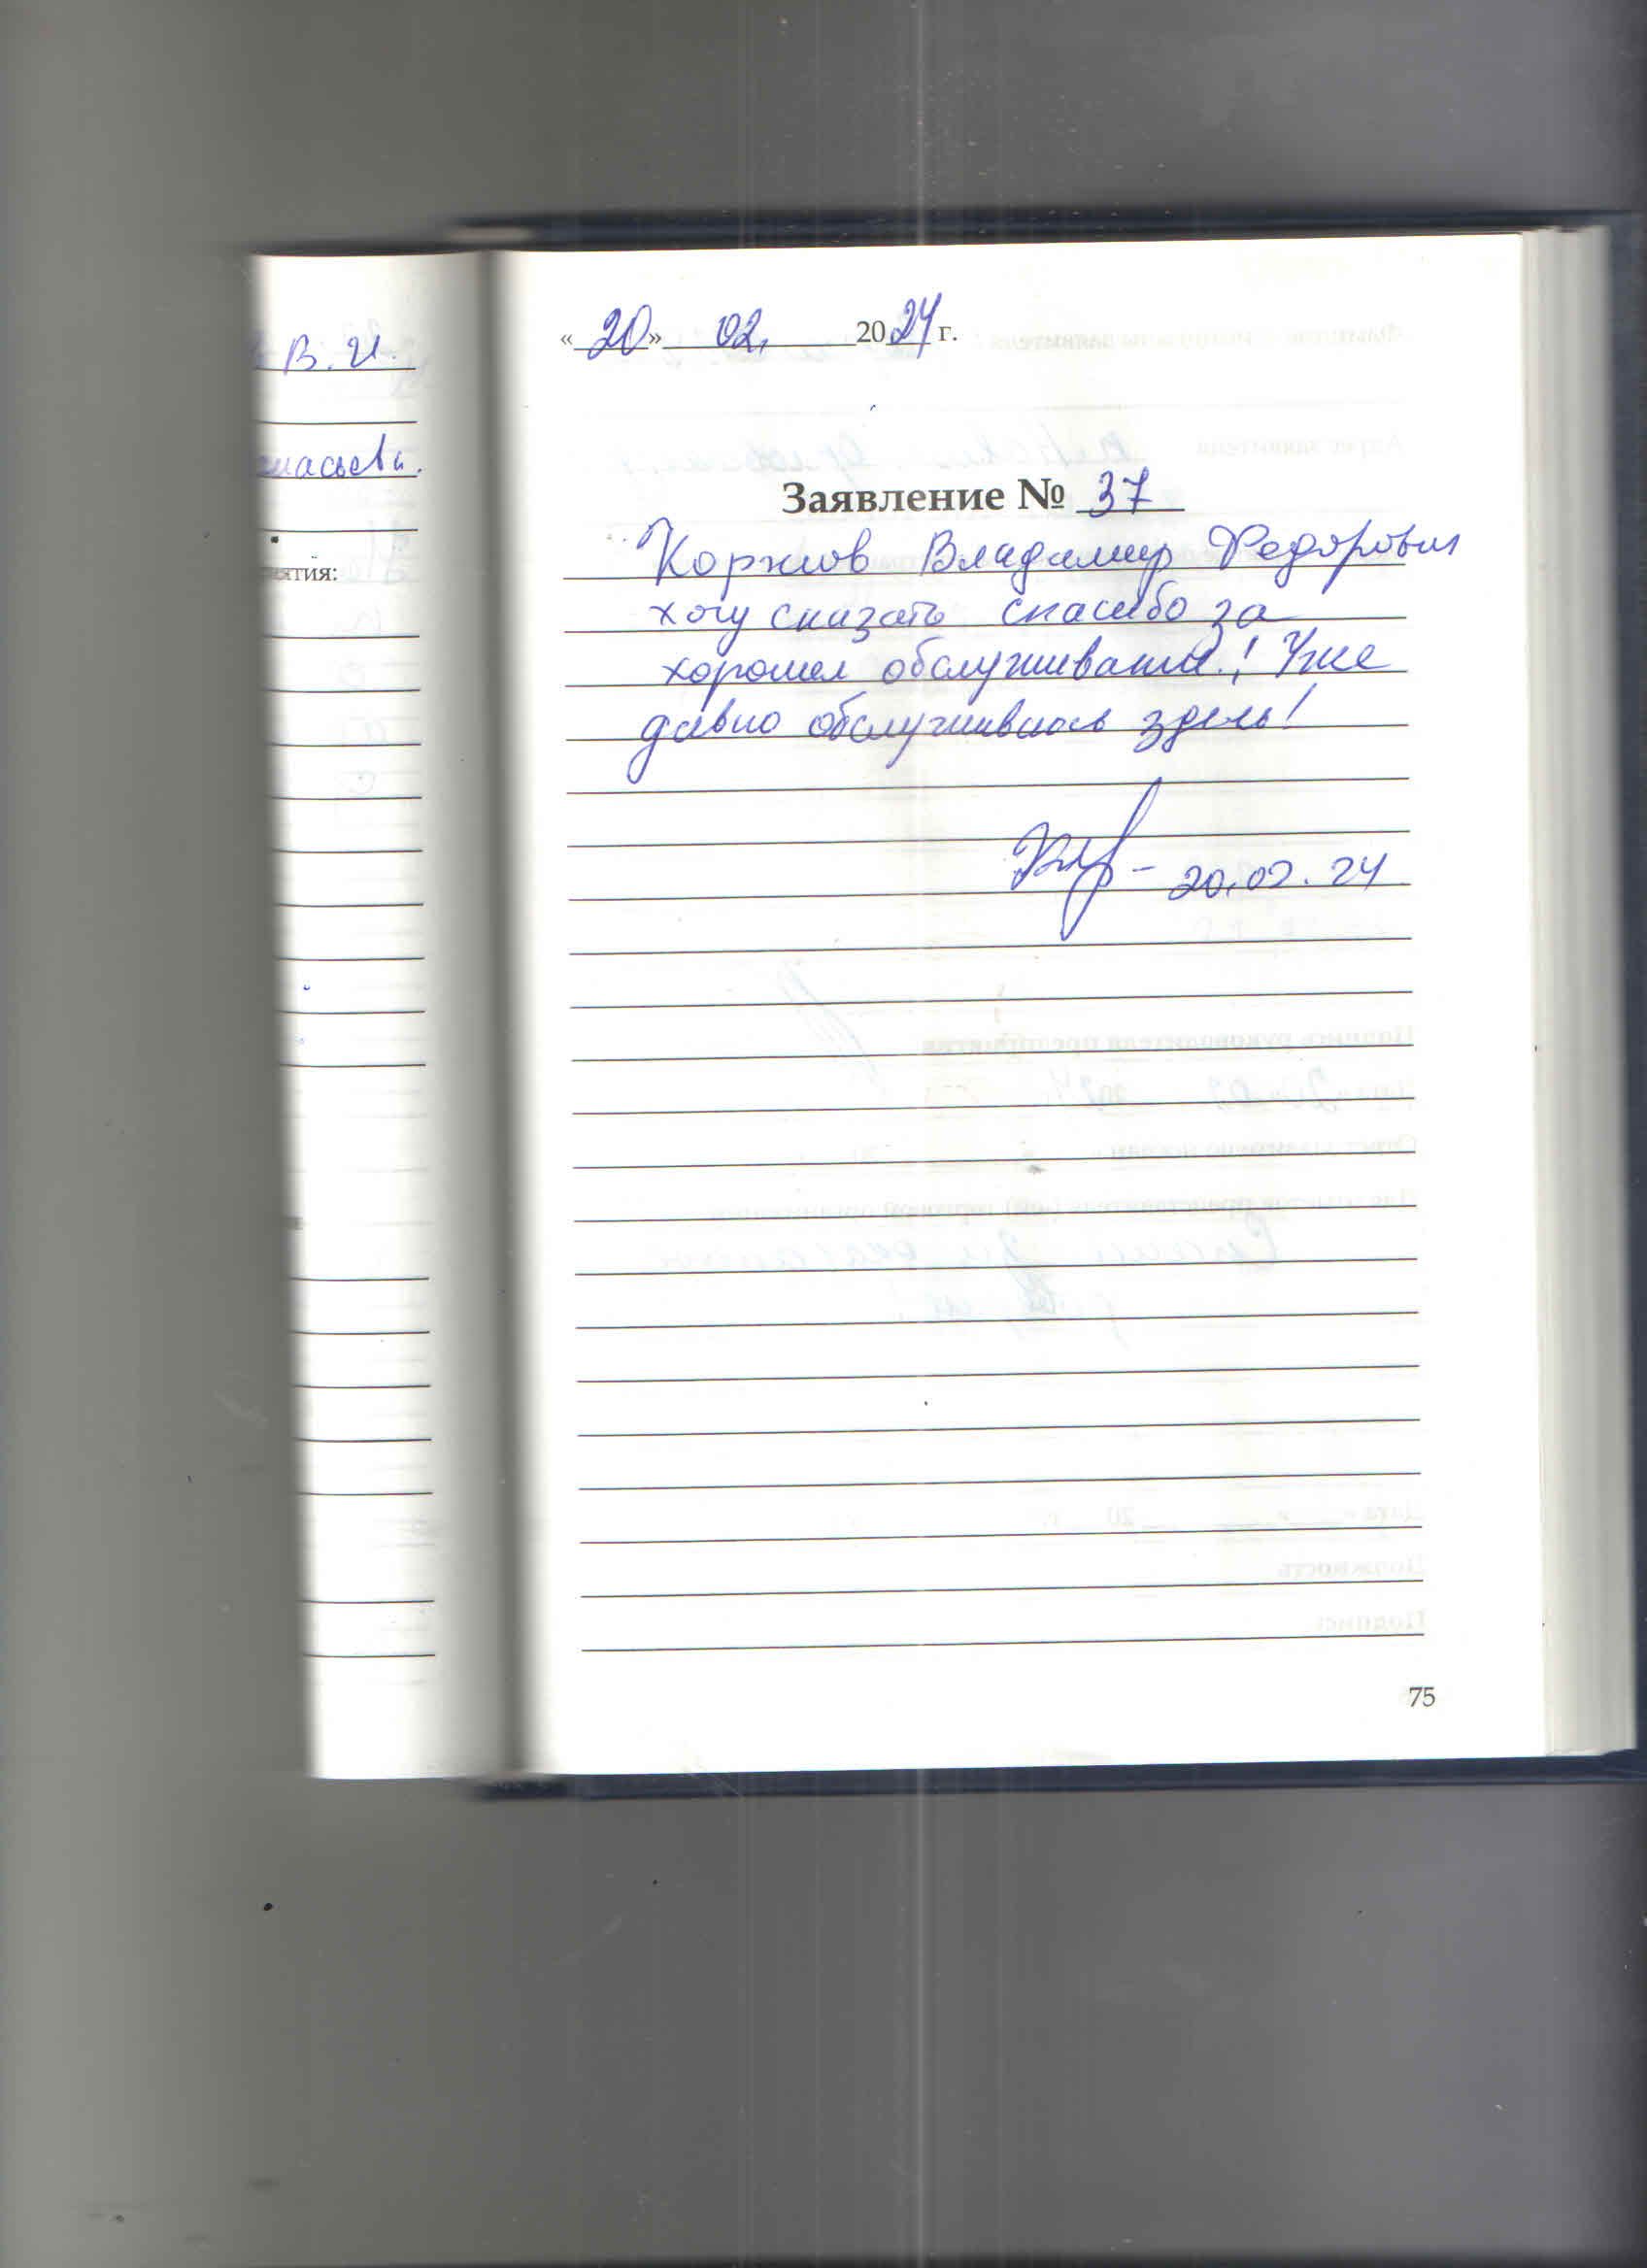 В. И.
ятия:
«20» 02. 2024 г.
Заявление № 37
Владимир Федорович
хочу сказать спасибо за
хорошее обслуживание! Уже
давно обслуживаюсь здесь!
20.02.24
75